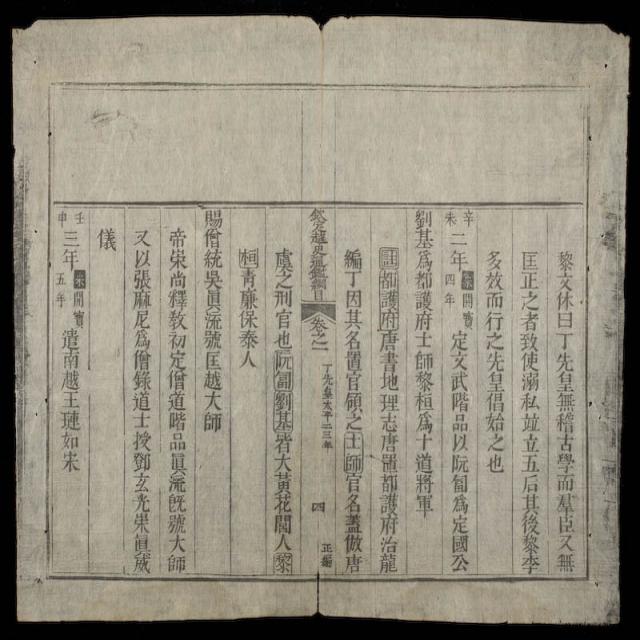 黎文休曰丁先皇無稽古學而羣臣又無
匡正之者致使溺私竝立五后其後黎李
多效而行之先皇倡始之也
辛未二年宋開寶四年定文武階品以阮匐爲定國公
劉基爲都護府士師黎桓爲十道將軍
註都護府唐書地理志唐羅都護府治龍
編丁因其名置官領之士師官名蓋倣唐
欽定越史通鑑綱目 卷之一 丁先皇太平二三年 四 正編
虞之刑官也阮匐劉基皆大黃花閭人黎
桓青廉保泰人
賜僧統吳眞流號匡越大師
帝崇尚釋教初定僧道階品眞流旣號大師
又以張麻尼爲僧錄道士授鄧玄光崇眞威
儀
壬申三年宋開寶五年遣南越王璉如宋